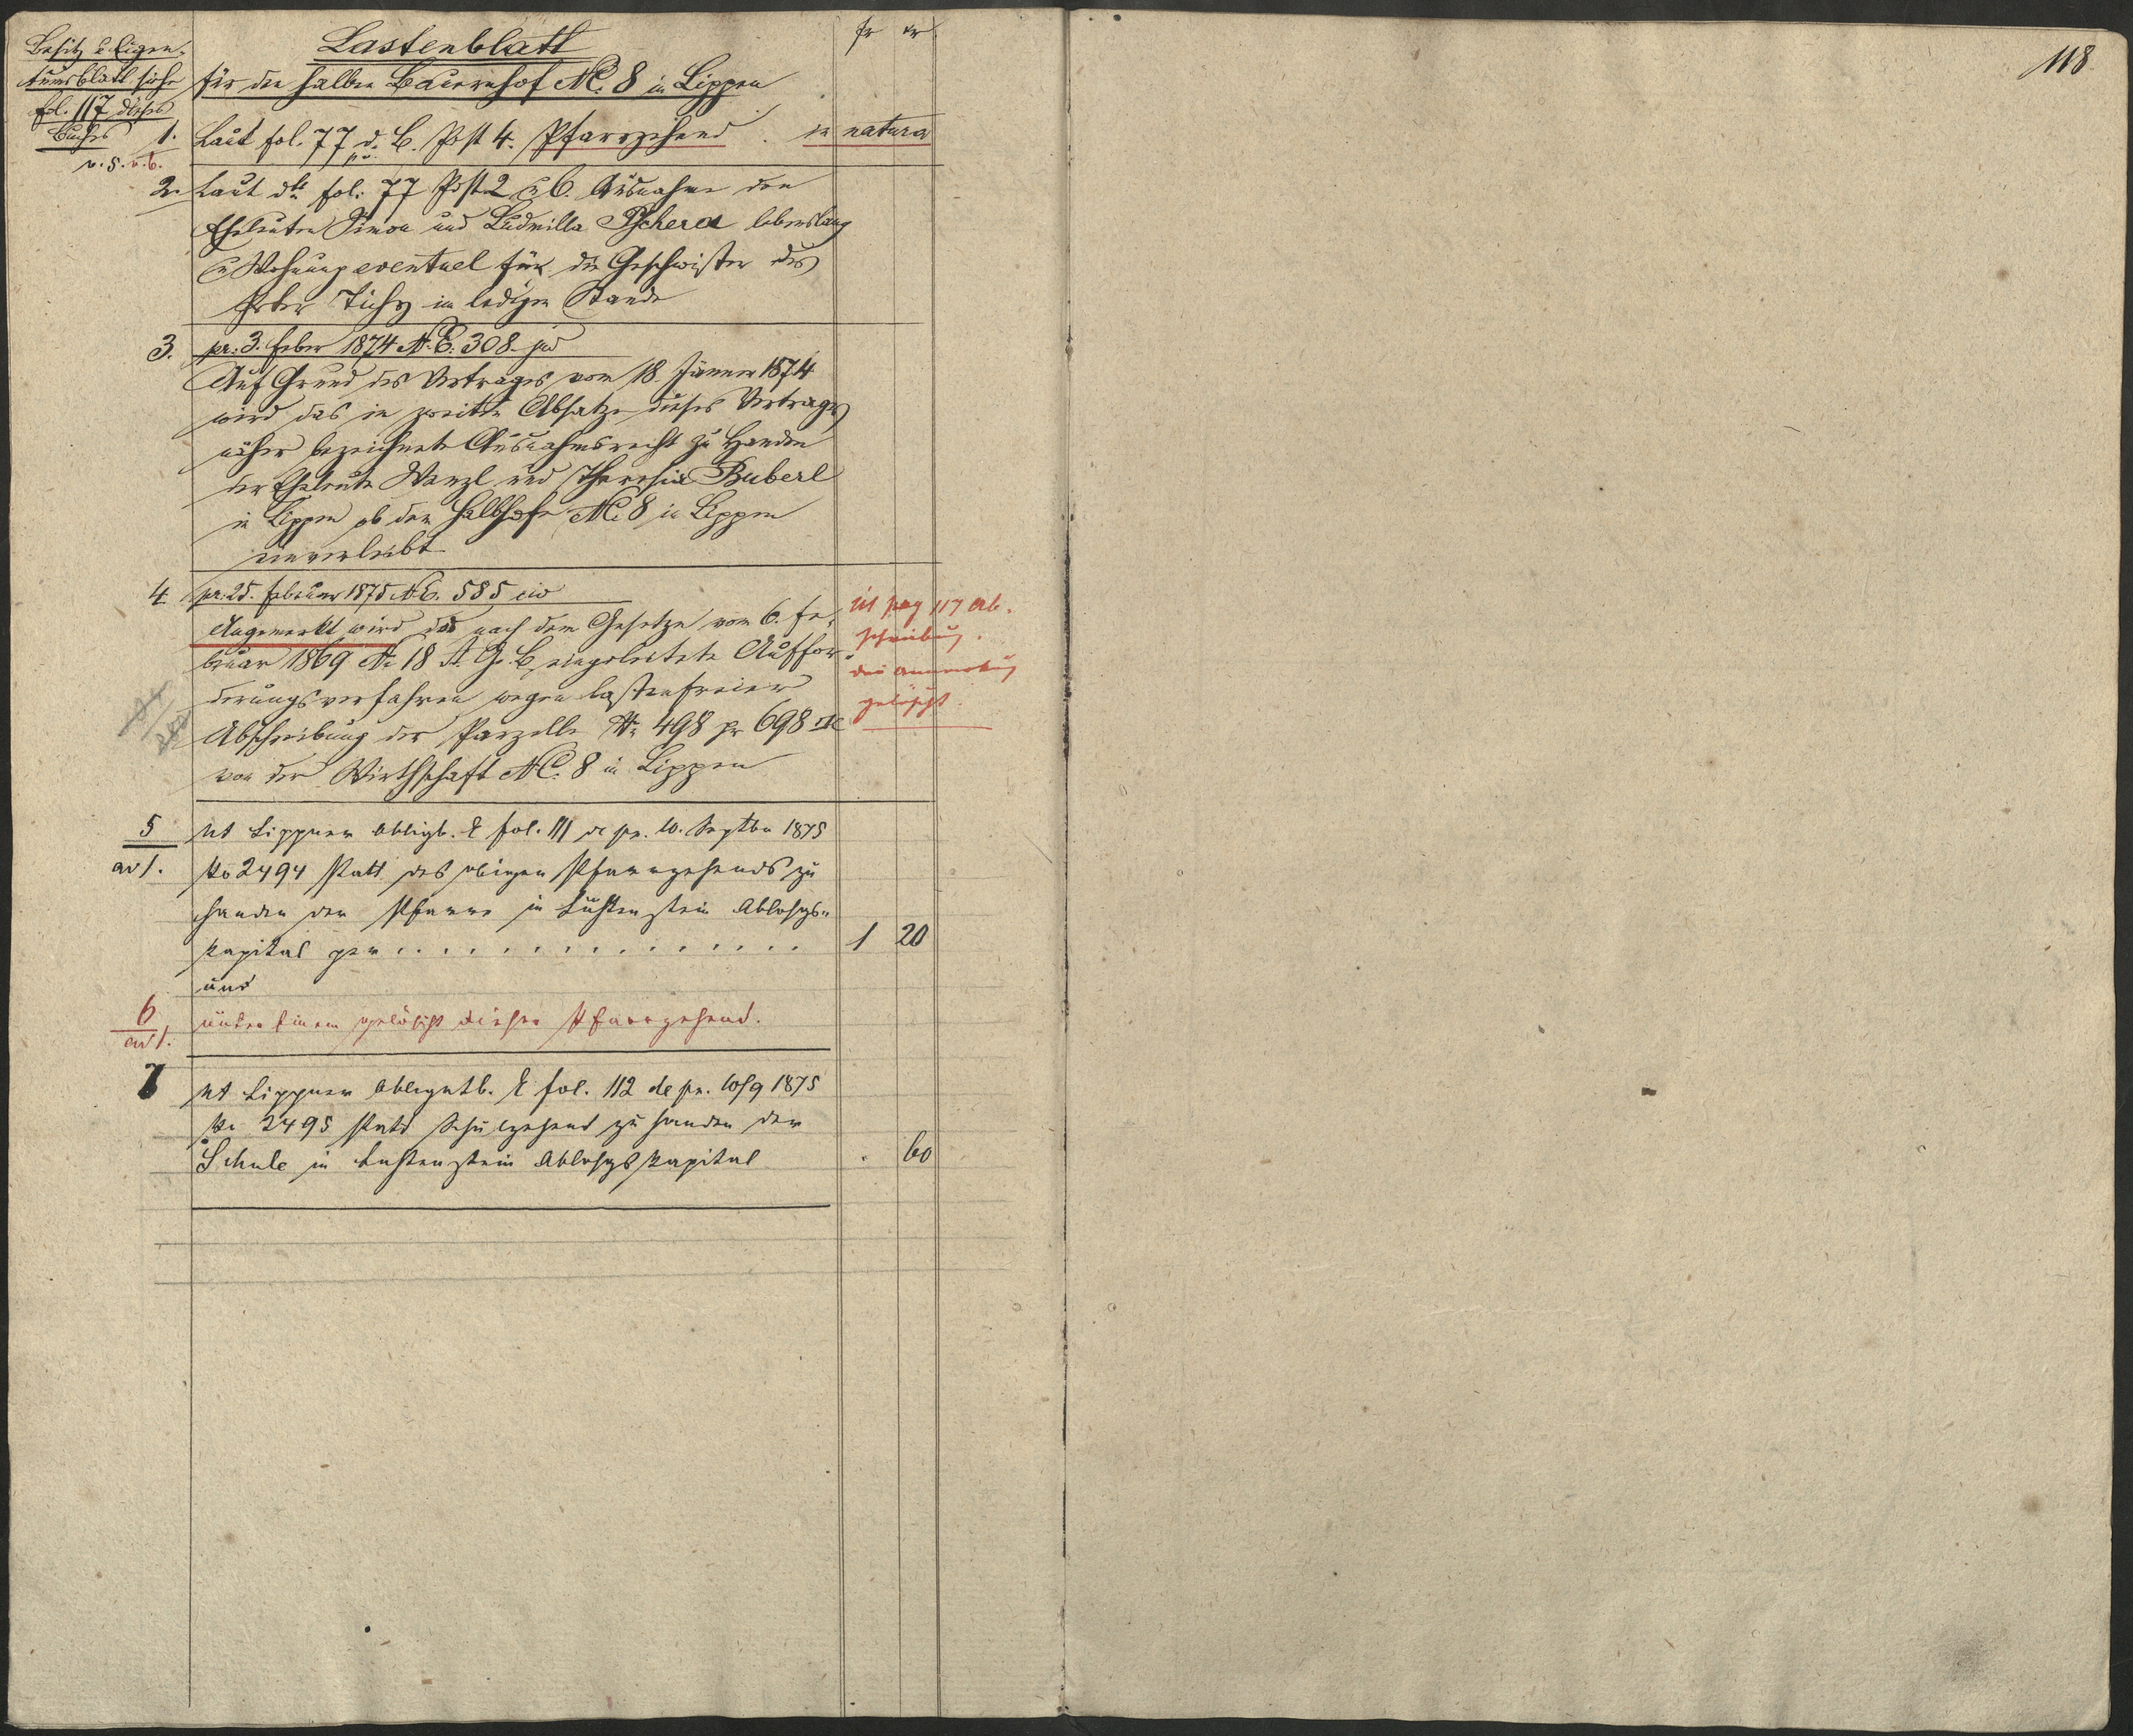 Besitz & Eigen-
tumsblatt siehe
fol. 117 dieses
Buches
v. 5. v. 6.
Lastenblatt
fr xr
für den halben Bauernhof NC. 8 in Lippen
1. Laut fol. 77 d. B. Post 4. Pfarrzehend in natura
2. Laut dto fol. 77 Post 2 & 6. Ausnahme den
Eheleuten Simon und Ludmilla Pschera lebenslang
& Wohnung eventuel für die Geschwister des
Tichy im ledigen Stande
3. pr. 3. Feber 1874 N.E. 308 jud
Auf Grund des Vertrages vom 18. Jänner 1874
wird das in zweiten Absatze dieses Vertrages
näher bezeichnete Ausnahmsrecht zu Handen
der Eheleute Wenzl und Theresia Buberl
in Lippen ob dem Halbhofe NC. 8 in Lippen
einverleibt
4. pr. 25. Februar 1875 N.E. 585 civ
Angemerkt wird das nach dem Gesetze vom 6. Fe-
bruar 1869 No 18 R. G. B. eingeleitete Auffor-
derungsverfahren wegen lastenfreier
Abschreibung der Parzelle No 498 pr 698
von der Wirthschaft NC. 8 in Lippen
ut pag 117 Ab-
schreibung.
die Anmerkung
gelöscht.
5
ad 1.
ut Lippner Obligb. E fol. 111 de pr. 10. Septbr 1875
No 2494 statt des obigen Pfarrzehends zu
Handen der Pfarre in Luschtenstein Ablösgs-
kapital per . . . . . . . . . . . . . . . . 1 20
und
6
ad 1.
unter Einem gelöscht dieser Pfarrzehend.
7 ut Lippner Obligatb. E fol. 112 de pr. 10/9 1875
No 2495 statt Schulzehend zu Handen der
Schule in Luschtenstein Ablösgskapital . 60
118